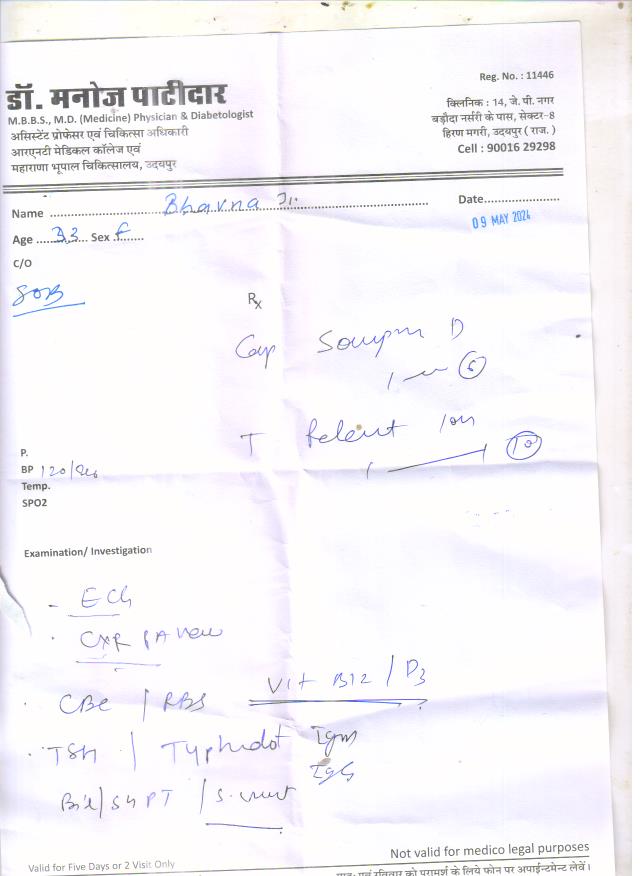 Reg. No. : 11446
डॉ. मनोज पाटीदार
M.B.B.S., M.D. (Medicine) Physician & Diabetologist
असिस्टेंट प्रोफेसर एवं चिकित्सा अधिकारी
आरएनटी मेडिकल कॉलेज एवं
महाराणा भूपाल चिकित्सालय, उदयपुर
क्लिनिक : 14, जे. पी. नगर
बड़ौदा नर्सरी के पास, सेक्टर-8
हिरण मगरी, उदयपुर ( राज. )
Cell : 90016 29298
Name Bhavna Ji.
Date 09 MAY 2024
Age 33 Sex F
C/O
SOB
Rx
Cap D
T 10
P.
BP 120/
Temp.
SPO2
Examination/ Investigation
- ECG
. CXR PA view
. CBC / RBS Vit B12 / D3
. TSH / Typhidot IgM
IgG
Bil / SGPT / S.
Not valid for medico legal purposes
Valid for Five Days or 2 Visit Only
रविवार को परामर्श के लिये फोन पर अपाईन्टमेन्ट लेवें।